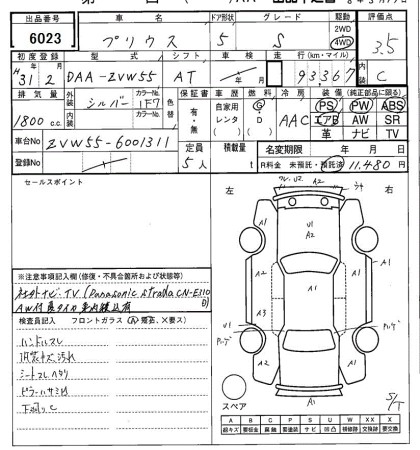 出品番号 車名 ドア形状 グレード 駆動 評価点
6023 プリウス 5 S 2WD 4WD 3.5
初度登録 型式 シフト 車検 走行(km・マイル) 内装
H31年2月 DAA-ZVW55 AT 年 月 93,367 C
排気量 外装 カラーNo. 色替 保証書 車歴 燃料 冷房 装備(純正部品に限る)
1800 c.c. シルバー 1F7 有・無 自家用 レンタ G・D AAC PS PW ABS
内装 カラーNo. エアB AW SR
革 ナビ TV
車台No ZVW55-6001311 定員 5人 積載量 t 名変期限 年 月 日
登録No R料金 未預託・預託済 11,480円
セールスポイント
左 右
A2
A1 U1 A1
A2
A2 A1 A2
A3
U1
A2 A2
A1
※注意事項記入欄(修復・不具合箇所および状態等)
社外ナビ・TV(Panasonic Strada CN-E110D)
検査員記入 フロントガラス(A)飛石、×要ス)
ハンドルスレ
内装キズ汚れ
シートスレ
スペア
S/T
A B C P S U W X XX
線キズ 要板金 腐蝕 要塗装 サビ 凹凸 補修跡 交換跡 要交換